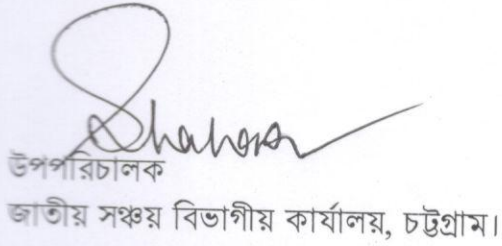 উপপরিচালক
জাতীয় সঞ্চয় বিভাগীয় কার্যালয়, চট্টগ্রাম।